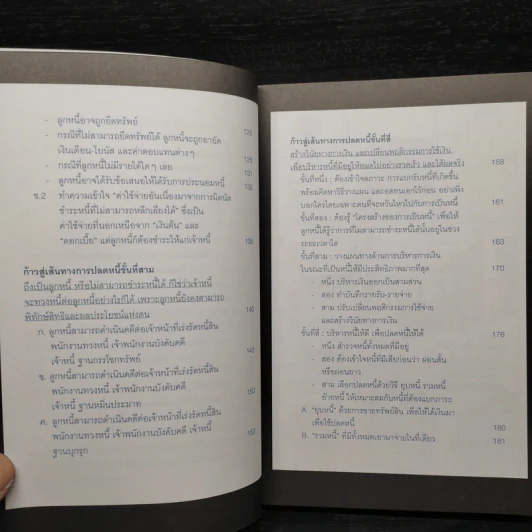 - ลูกหนี้อาจถูกยึดทรัพย์
- กรณีที่ไม่สามารถยึดทรัพย์ได้ ลูกหนี้จะถูกอายัด
เงินเดือน-โบนัส และค่าตอบแทนต่างๆ
- กรณีที่ลูกหนี้ไม่มีรายได้ใดๆ เลย
- ลูกหนี้อาจได้รับข้อเสนอให้ได้รับการประนอมหนี้
ข.2 ทำความเข้าใจ "ค่าใช้จ่ายอันเนื่องมาจากการผิดนัด
ชำระหนี้ที่ไม่สามารถหลีกเลี่ยงได้" ซึ่งเป็น
ค่าใช้จ่ายที่นอกเหนือจาก "เงินต้น" และ
"ดอกเบี้ย" แต่ลูกหนี้ก็ต้องชำระให้แก่เจ้าหนี้
ก้าวสู่เส้นทางการปลดหนี้ขั้นที่สาม
ถึงเป็นลูกหนี้ หรือไม่สามารถชำระหนี้ได้ ก็ใช่ว่าเจ้าหนี้
จะทวงหนี้ต่อลูกหนี้อย่างไรก็ได้ เพราะลูกหนี้ยังคงสามารถ
พิทักษ์สิทธิและผลประโยชน์แห่งตน
ก. ลูกหนี้สามารถดำเนินคดีต่อเจ้าหน้าที่เร่งรัดหนี้สิน
พนักงานทวงหนี้ เจ้าพนักงานบังคับคดี
เจ้าหนี้ ฐานกรรโชกทรัพย์
ข. ลูกหนี้สามารถดำเนินคดีต่อเจ้าหน้าที่เร่งรัดหนี้สิน
พนักงานทวงหนี้ เจ้าพนักงานบังคับคดี
เจ้าหนี้ ฐานหมิ่นประมาท
ค. ลูกหนี้สามารถดำเนินคดีต่อเจ้าหน้าที่เร่งรัดหนี้สิน
พนักงานทวงหนี้ เจ้าพนักงานบังคับคดี เจ้าหนี้
ฐานบุกรุก
ก้าวสู่เส้นทางการปลดหนี้ขั้นที่สี่
สร้างวินัยทางการเงิน และเปลี่ยนพฤติกรรมการใช้เงิน
เพื่อบริหารหนี้ที่มีอยู่ให้หมดไปอย่างรวดเร็ว และได้ผลจริง 158
ขั้นที่หนึ่ง : ต้องเข้าใจสภาวะ การแบกรับหนี้ที่เกิดขึ้น
พร้อมคิดหาวิธีวางแผน และอดทนเอาไว้ก่อน อย่าเพิ่ง
บอกใครโดยเฉพาะคนที่จะหวั่นไหวไปกับการเป็นหนี้ 161
ขั้นที่สอง : ต้องรู้ "โครงสร้างของการเป็นหนี้" เพื่อให้
ลูกหนี้ได้รู้ว่าการที่ไม่สามารถชำระหนี้ได้นั้นอยู่ในช่วง
ระยะเวลาใด 163
ขั้นที่สาม : วางแผนทางด้านการบริหารการเงิน
ในขณะที่เป็นหนี้ให้มีประสิทธิภาพมากที่สุด 170
- หนึ่ง บริหารเงินออกเป็นสามส่วน
- สอง ทำบันทึกรายรับ-รายจ่าย
- สาม ปรับเปลี่ยนพฤติกรรมการใช้จ่าย
และสร้างวินัยทางการเงิน
ขั้นที่สี่ : บริหารหนี้ให้ดี เพื่อปลดหนี้ให้ได้ 176
- หนึ่ง สำรวจหนี้ทั้งหมดที่มีอยู่
- สอง ต้องเข้าใจหนี้ที่มีเสียก่อนว่า ผ่อนสั้น
หรือผ่อนยาว
- สาม เลือกปลดหนี้ด้วยวิธี ยุบหนี้ รวมหนี้
ย้ายหนี้ ให้เหมาะสมกับหนี้ที่ต้องแบกภาระ
A. "ยุบหนี้" ด้วยการขายทรัพย์สิน เพื่อให้ได้เงินมา
เพื่อใช้ปลดหนี้ 180
B. "รวมหนี้" ที่มีทั้งหมดเอามาจ่ายในที่เดียว 181